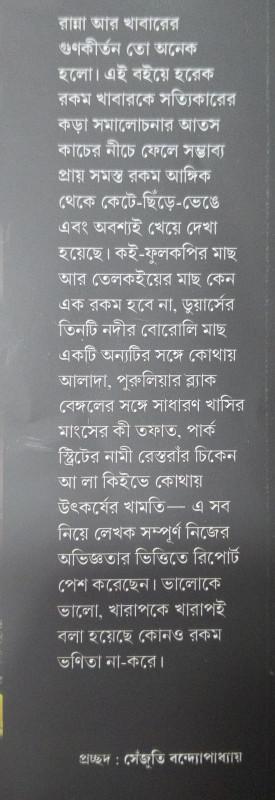 রান্না আর খাবারের
গুণকীর্তন তো অনেক
হলো। এই বইয়ে হরেক
রকম খাবারকে সত্যিকারের
কড়া সমালোচনার আতস
কাচের নীচে ফেলে সম্ভাব্য
প্রায় সমস্ত রকম আঙ্গিক
থেকে কেটে-ছিঁড়ে-ভেঙে
এবং অবশ্যই খেয়ে দেখা
হয়েছে। কই-ফুলকপির মাছ
আর তেলকইয়ের মাছ কেন
এক রকম হবে না, ডুয়ার্সের
তিনটি নদীর বোরোলি মাছ
একটি অন্যটির সঙ্গে কোথায়
আলাদা, পুরুলিয়ার ব্ল্যাক
বেঙ্গলের সঙ্গে সাধারণ খাসির
মাংসের কী তফাত, পার্ক
স্ট্রিটের নামী রেস্তরাঁর চিকেন
আ লা কিইভে কোথায়
উৎকর্ষের খামতি— এ সব
নিয়ে লেখক সম্পূর্ণ নিজের
অভিজ্ঞতার ভিত্তিতে রিপোর্ট
পেশ করেছেন। ভালোকে
ভালো, খারাপকে খারাপই
বলা হয়েছে কোনও রকম
ভণিতা না-করে।
প্রচ্ছদ : সেঁজুতি বন্দ্যোপাধ্যায়